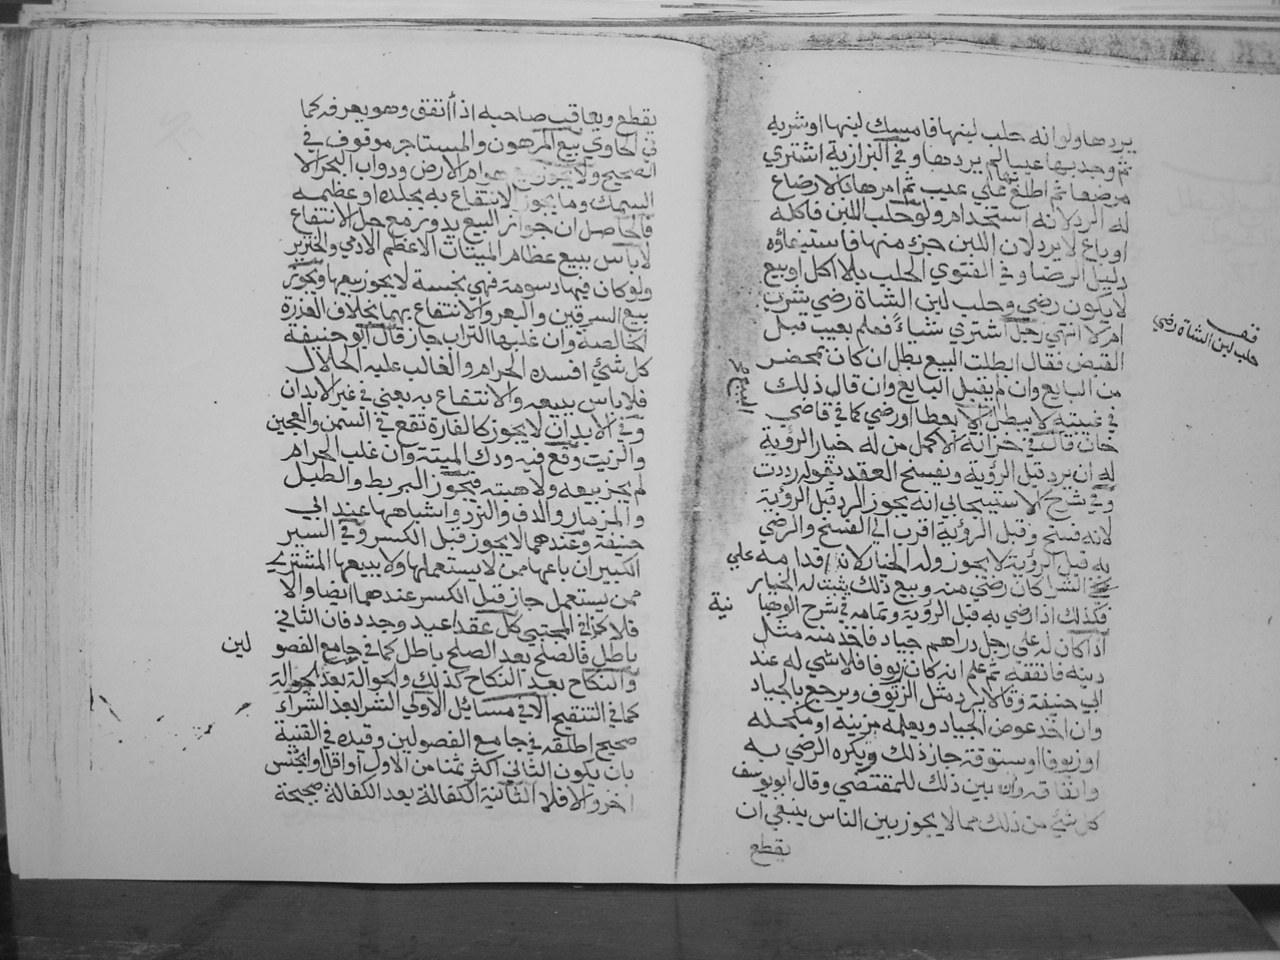 يردها ولو انه حلب لبنها فامسك لبنها او شربه
ثم وجد بها عيبا لم يردها وفي البزازية اشترى
مرضعا ثم اطلع على عيب ثم امرها بالارضاع
له الرد لانه استخدام ولو حلب اللبن فاكله
او باع لا يرد لان اللبن جزء منها فاستيفاؤه
دليل الرضا وفي الفتوى الحلب بلا اكل او بيع
لا يكون رضى وحلب لبن الشاة رضى شرب
ام لا انتهى رجل اشترى شياء فعلم بعيب قبل
القبض فقال ابطلت البيع بطل ان كان بمحضر
من البايع وان لم يقبل البايع وان قال ذلك
في غيبته لا يبطل الا بقضا او رضى كما في قاضي
خان قال في خزانة الاكمل من له خيار الرؤية
له ان يرد قبل الرؤية ونفسخ العقد بقوله رددت
وفي شرح الاسبيجابي انه يجوز الرد قبل الرؤية
لانه فسخ وقبل الرؤية اقرب الى الفسخ والرضى
به قبل الرؤية لا يجوز وله الخيار لانه اقدامه على
الشرا كان رضى منه وبيع ذلك يثبت له الخيار
فكذلك اذا رضي به قبل الرؤية وتمامه في شرح الوهبا
نية
اذا كان له على رجل دراهم جياد فاخذ منه مثل
دينه فانفقه ثم علم انه كان زيوفا فلا شي له عند
ابي حنيفة وقالا يرد مثل الزيوف ويرجع بالجياد
وان اخذ عوض الجياد وبعلمه مزينه او مكحله
او زيوفا او ستوقة جاز ذلك ويكره الرضى به
وانفاقه وان بين ذلك للمقتضى وقال ابو يوسف
كل شيء من ذلك مما لا يجوز بين الناس ينبغي ان
يقطع
البيع
قف
حلب لبن الشاة رضى
يقطع ويعاقب صاحبه اذا انفق وهو يعرفه كما
في الحاوي بيع المرهون والمستاجر موقوف في
انه صحيح ولا يجوز بيع هوام الارض ودواب البحر الا
السمك وما يجوز الانتفاع به بجلده او عظمه
فالحاصل ان جواز البيع يدور مع حل الانتفاع
لا باس ببيع عظام الميتات الا عظم الادمي والخنزير
ولو كان فيها دسومة فهي نجسة لا يجوز بيعها ويجوز
بيع السرقين والبعر والانتفاع بهما بخلاف العذرة
الخالصة وان غلبها التراب جاز قال ابو حنيفة
كل شيء افسده الحرام والغالب عليه الحلال
فلا باس ببيعه والانتفاع به يعني في غير الابدان
وفي الابدان لا يجوز كالفارة تقع في السمن والعجين
والزيت وقع فيه ودك الميتة وان غلب الحرام
لم يجز بيعه ولا هبته فيجوز البربط والطبل
والمزمار والدف والنرد واشباهها عند ابي
حنيفة وعندهما لا يجوز قبل الكسر وفي السير
الكبير ان باعها ممن لا يستعملها ولا يبيعها المشتري
ممن يستعمل جاز قبل الكسر عندهما ايضا والا
فلا كذا في المجتبى كل عقد اعيد وجدد فان الثاني
باطل فالصلح بعد الصلح باطل كما في جامع الفصو
لين
والنكاح بعد النكاح كذلك والحوالة بعد الحوالة
كما في التنقيح الا في مسائل الاولى الشرا بعد الشراء
صحيح اطلقه في جامع الفصولين وقيده في القنية
بان يكون الثاني اكثر ثمنا من الاول او اقل او بجنس
اخر والا فلا الثانية الكفالة بعد الكفالة صحيحة